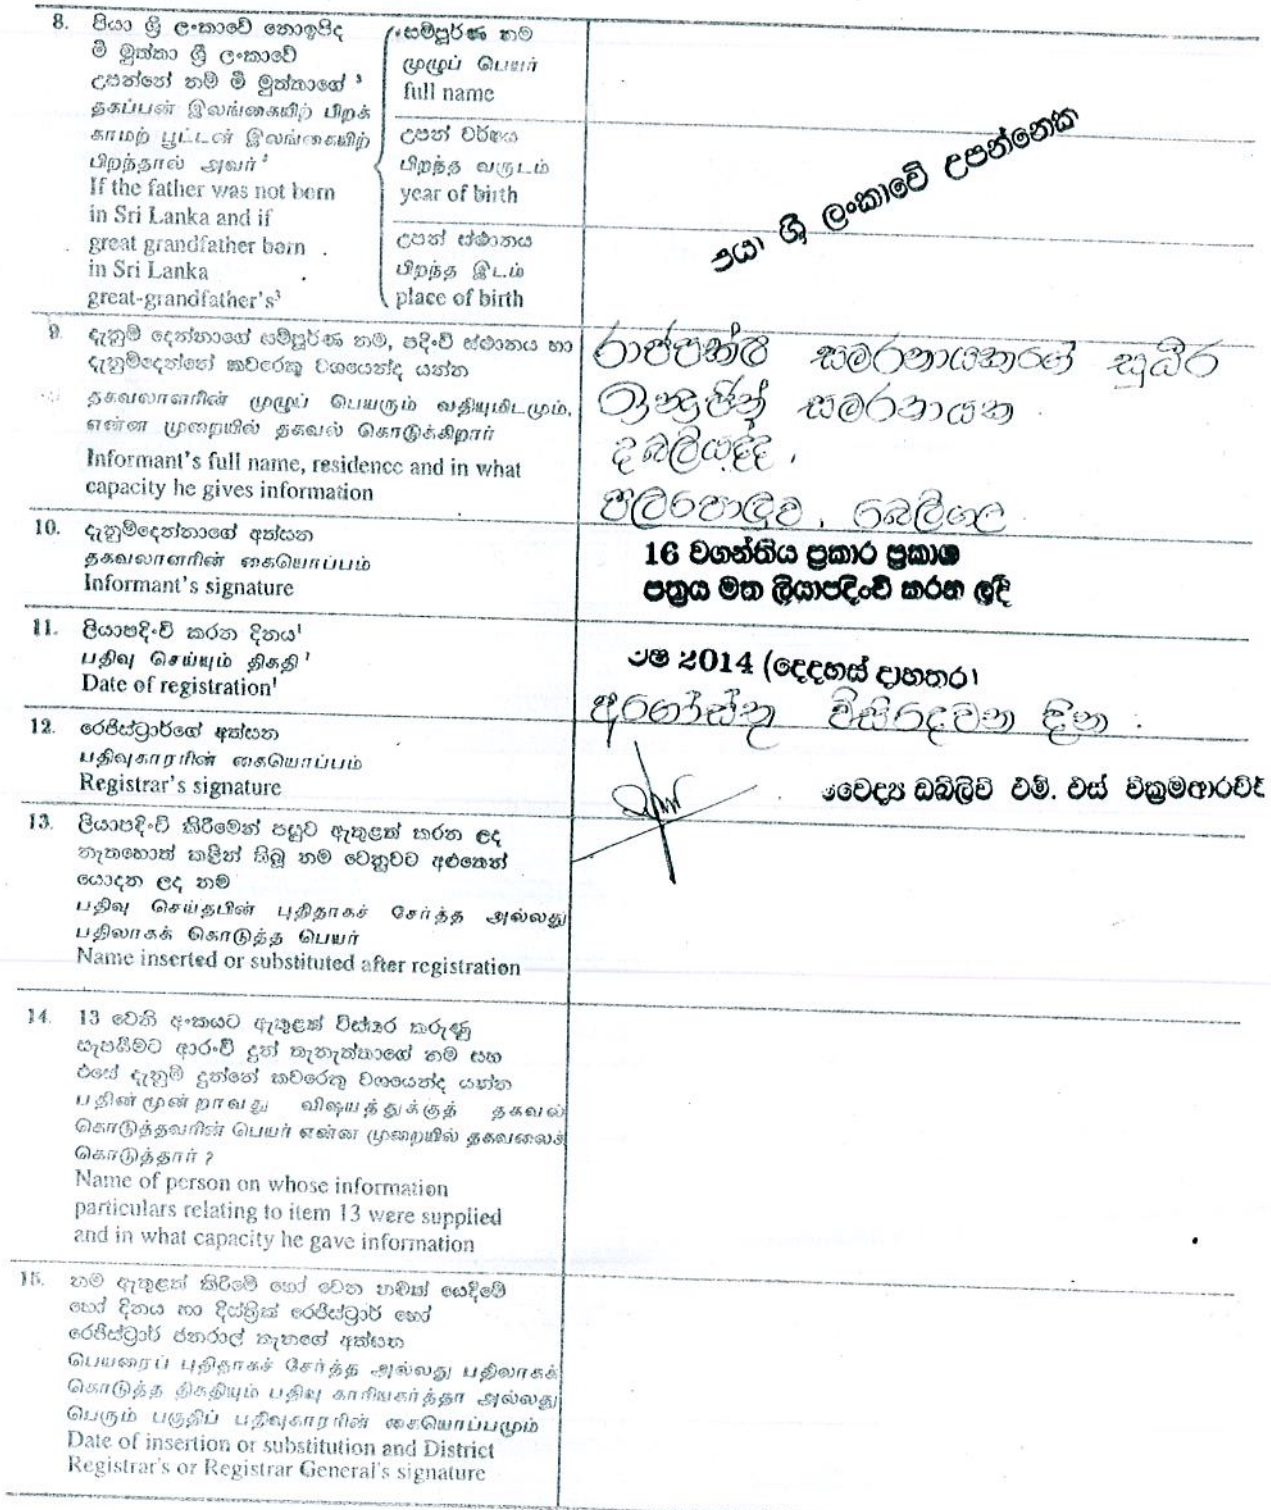 8. පියා ශ්‍රී ලංකාවේ නොඉපිද
මී මුත්තා ශ්‍රී ලංකාවේ
උපන්නේ නම් මී මුත්තාගේ ³
தகப்பன் இலங்கையிற் பிறக்
காமற் பூட்டன் இலங்கையிற்
பிறந்தால் அவர் ³
If the father was not born
in Sri Lanka and if
great grandfather born
in Sri Lanka
great-grandfather's³
සම්පූර්ණ නම
முழுப் பெயர்
full name
උපන් වර්ෂය
பிறந்த வருடம்
year of birth
උපන් ස්ථානය
பிறந்த இடம்
place of birth
ශ්‍රී ලංකාවේ උපන්නෙක
9. දැනුම් දෙන්නාගේ සම්පූර්ණ නම, පදිංචි ස්ථානය හා
දැනුම්දෙන්නේ කවරෙකු වශයෙන්ද යන්න
தகவலாளரின் முழுப் பெயரும் வதியுமிடமும்,
என்ன முறையில் தகவல் கொடுக்கிறார்
Informant's full name, residence and in what
capacity he gives information
රාජපක්ෂ සමරනායකගේ සුධීර
ඉන්ද්‍රජිත් සමරනායක
දඹලියද්ද,
පලපොළුව, බෙලිගල
10. දැනුම්දෙන්නාගේ අත්සන
தகவலாளரின் கையொப்பம்
Informant's signature
16 වගන්තිය ප්‍රකාර ප්‍රකාශ
පත්‍රය මත ලියාපදිංචි කරන ලදී
11. ලියාපදිංචි කරන දිනය¹
பதிவு செய்யும் திகதி ¹
Date of registration¹
වෂ 2014 (දෙදහස් දාහතර)
අගෝස්තු විසිදෙවන දින .
12. රෙජිස්ට්‍රාර්ගේ අත්සන
பதிவுகாரரின் கையொப்பம்
Registrar's signature
වෛද්‍ය ඩබ්ලිව් එම්. එස් වික්‍රමආරච්චි
13. ලියාපදිංචි කිරීමෙන් පසුව ඇතුළත් කරන ලද
නැතහොත් කළින් තිබූ නම වෙනුවට අළුතෙන්
යොදන ලද නම
பதிவு செய்தபின் புதிதாகச் சேர்த்த அல்லது
பதிலாகக் கொடுத்த பெயர்
Name inserted or substituted after registration
14. 13 වෙනි අංකයට ඇතුළත් විස්තර කරුණු
සැපයීමට ආරංචි දුන් තැනැත්තාගේ නම සහ
එසේ දැනුම් දුන්නේ කවරෙකු වශයෙන්ද යන්න
பதின்மூன்றாவது விஷயத்துக்குத் தகவல்
கொடுத்தவரின் பெயர் என்ன முறையில் தகவலைக்
கொடுத்தார் ?
Name of person on whose information
particulars relating to item 13 were supplied
and in what capacity he gave information
15. නම ඇතුළත් කිරීමේ හෝ වෙන නමක් යෙදීමේ
හෝ දිනය හා දිස්ත්‍රික් රෙජිස්ට්‍රාර් හෝ
රෙජිස්ට්‍රාර් ජනරාල් තැනගේ අත්සන
பெயரைப் புதிதாகச் சேர்த்த அல்லது பதிலாகக்
கொடுத்த திகதியும் பதிவு காரியகர்த்தா அல்லது
பெரும் பகுதிப் பதிவுகாரரின் கையொப்பமும்
Date of insertion or substitution and District
Registrar's or Registrar General's signature